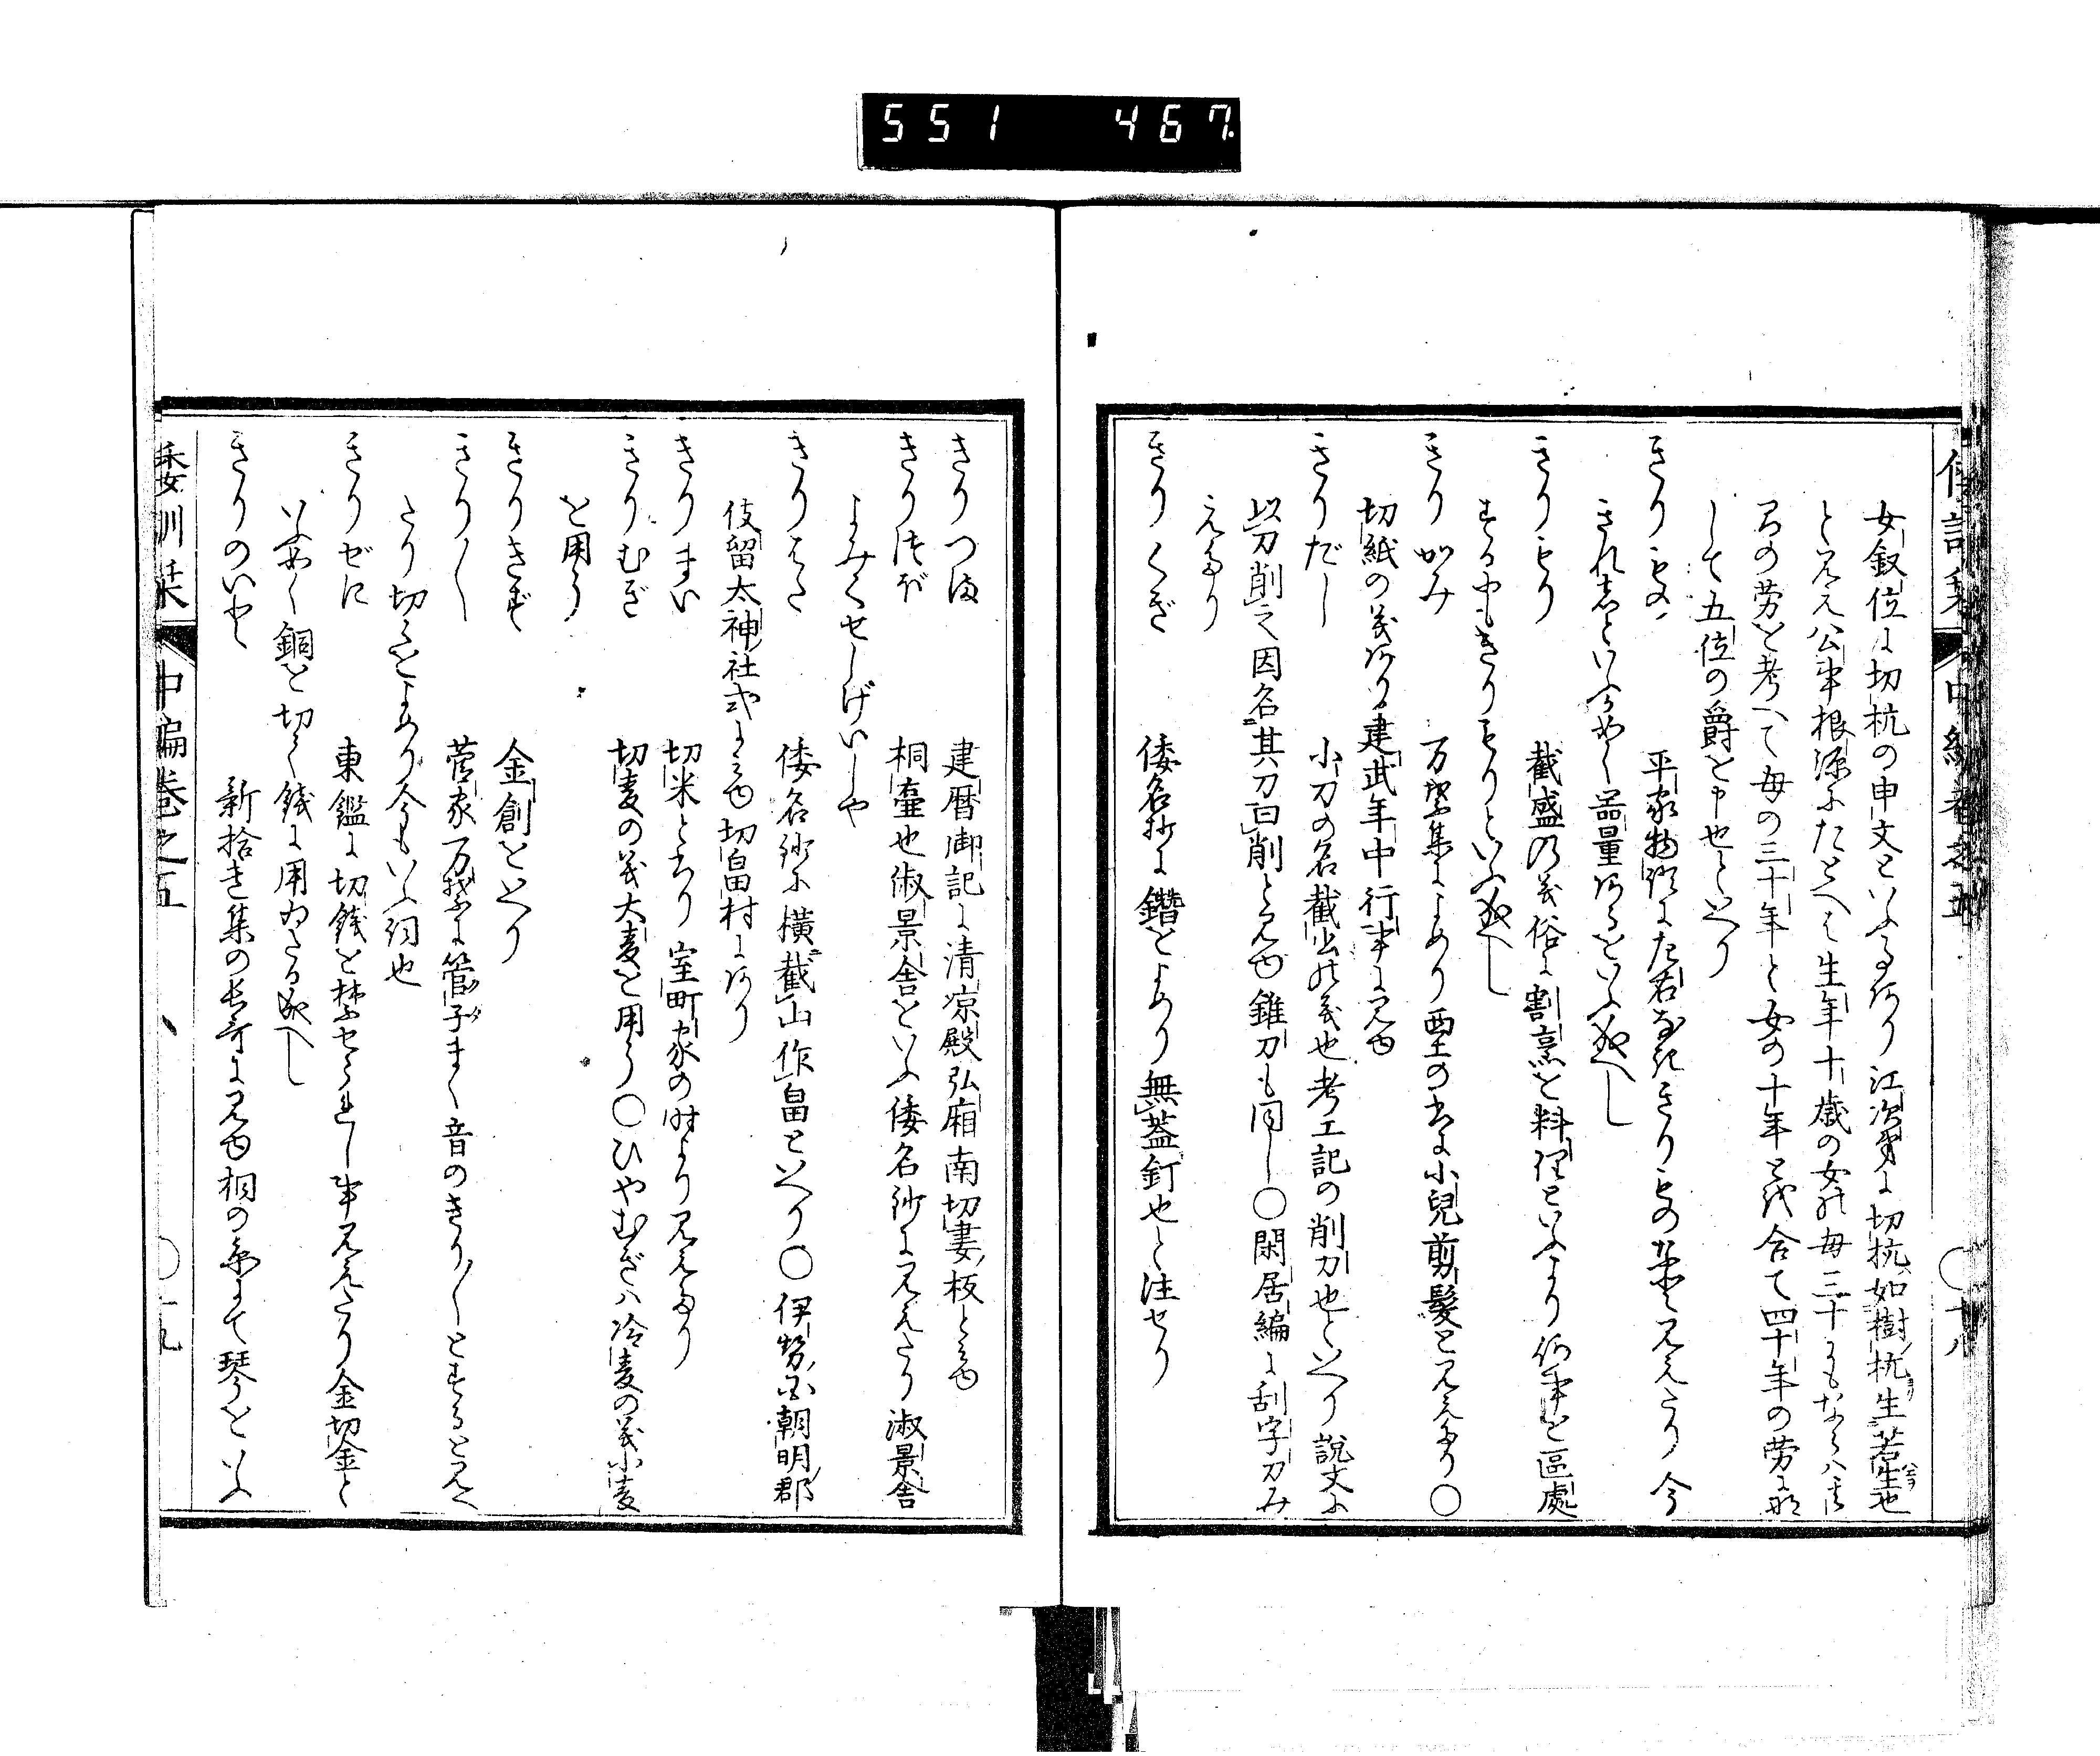 551 467
女叙位に切杭の申文といふ事あり江次第に切杭如樹杭生若生也
と見え公事根源にたとへは生年十歳の女の毎三十にもならハ
の労を考へて毎の三十年と女の十年とを合て四十年の労に
して五位の爵と申也といへり
きりもの 平家物語に左右なきゝりもの見えたり今
きれものといふ今あく器量あるをいふ成へし
きりもり 截盛の義俗に割烹を料理といふより何事を區處
するにもきりもりといふ成へし
きりかみ 万葉集によめり西土の書に小兒剪髮と見えたり〇
切紙の義あり建武年中行事に見ゆ
きりだし 小刀の名截出の義也考工記の削刀也といへり説文に
以刀削之因名其刀曰削と見ゆ錐刀も同し〇閑居編に刮字刀み
えたり
きりくぎ 倭名抄に鐕をよめり無蓋釘也と注せり
きりつま 建暦御記に清凉殿弘廂南切妻板とみゆ
きりつぼ 桐壷也淑景舎をいふ倭名鈔に見えたり淑景舎
よみくせしげいしや
きりはた 倭名鈔に横截山作畠といへり〇伊勢國朝明郡
伎留太神社式にみゆ切畠村にあり
きりまい 切米とかり室町家の時より見えたり
きりむぎ 切麦の義大麦を用う〇ひやむぎハ冷麦の義小麦
を用う
きりきず 金創をいへり
きり〱 菅家万葉に管子まく音のきり〱とするとみへ
たり切るをよめり今もいふ詞也
きりぜに 東鑑に切銭を禁せられし事見えたり金切金と
いふあく銅を切て銭に用ゐたる成へし
きりのいと 新拾き集の長哥に見ゆ桐の糸にて琴をいふ
倭訓栞 中編巻之五 〇十九